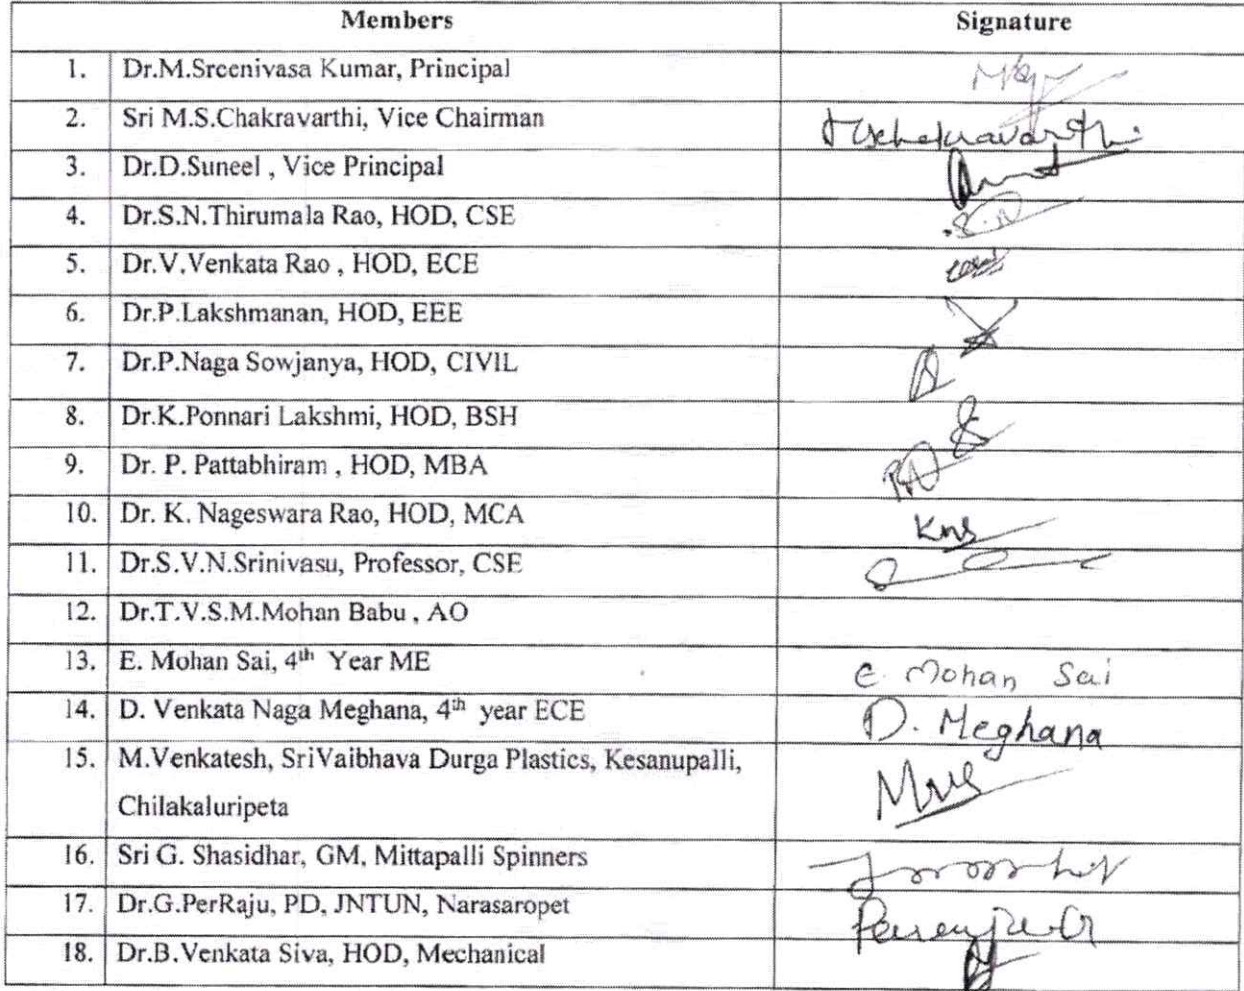 Members Signature
1. Dr.M.Sreenivasa Kumar, Principal
2. Sri M.S.Chakravarthi, Vice Chairman
3. Dr.D.Suneel , Vice Principal
4. Dr.S.N.Thirumala Rao, HOD, CSE
5. Dr.V.Venkata Rao , HOD, ECE
6. Dr.P.Lakshmanan, HOD, EEE
7. Dr.P.Naga Sowjanya, HOD, CIVIL
8. Dr.K.Ponnari Lakshmi, HOD, BSH
9. Dr. P. Pattabhiram , HOD, MBA
10. Dr. K. Nageswara Rao, HOD, MCA
11. Dr.S.V.N.Srinivasu, Professor, CSE
12. Dr.T.V.S.M.Mohan Babu , AO
13. E. Mohan Sai, 4th Year ME E. Mohan Sai
14. D. Venkata Naga Meghana, 4th year ECE D. Meghana
15. M.Venkatesh, SriVaibhava Durga Plastics, Kesanupalli,
Chilakaluripeta
16. Sri G. Shasidhar, GM, Mittapalli Spinners
17. Dr.G.PerRaju, PD, JNTUN, Narasaropet
18. Dr.B.Venkata Siva, HOD, Mechanical